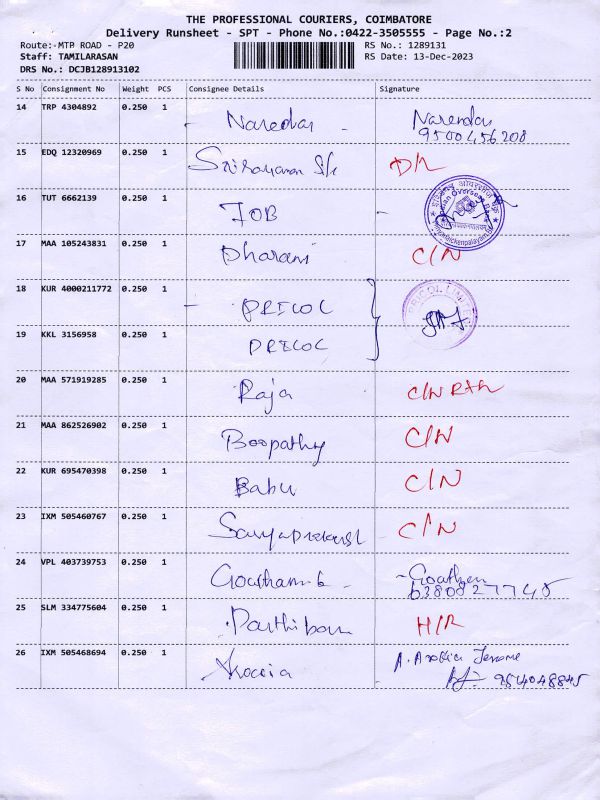 THE PROFESSIONAL COURIERS, COIMBATORE
Delivery Runsheet - SPT - Phone No.:0422-3505555 - Page No.:2
Route:-MTP ROAD - P20 RS No.: 1289131
Staff: TAMILARASAN RS Date: 13-Dec-2023
DRS No.: DCJB128913102
S No Consignment No Weight PCS Consignee Details Signature
14 TRP 4304892 0.250 1 Naredar - Narendar
9500456208
15 EDQ 12320969 0.250 1 DL
16 TUT 6662139 0.250 1 IOB
17 MAA 105243831 0.250 1 Dharani C/N
18 KUR 4000211772 0.250 1 - PRICOL
PRICOL LIMITED
19 KKL 3156958 0.250 1 PRICOL
20 MAA 571919285 0.250 1 Raja C/N
21 MAA 862526902 0.250 1 Boopathy C/N
22 KUR 695470398 0.250 1 Babu C/N
23 IXM 505460767 0.250 1 C/N
24 VPL 403739753 0.250 1 Gowtham
25 SLM 334775604 0.250 1 Parthiban H/R
26 IXM 505468694 0.250 1 A. Jerome